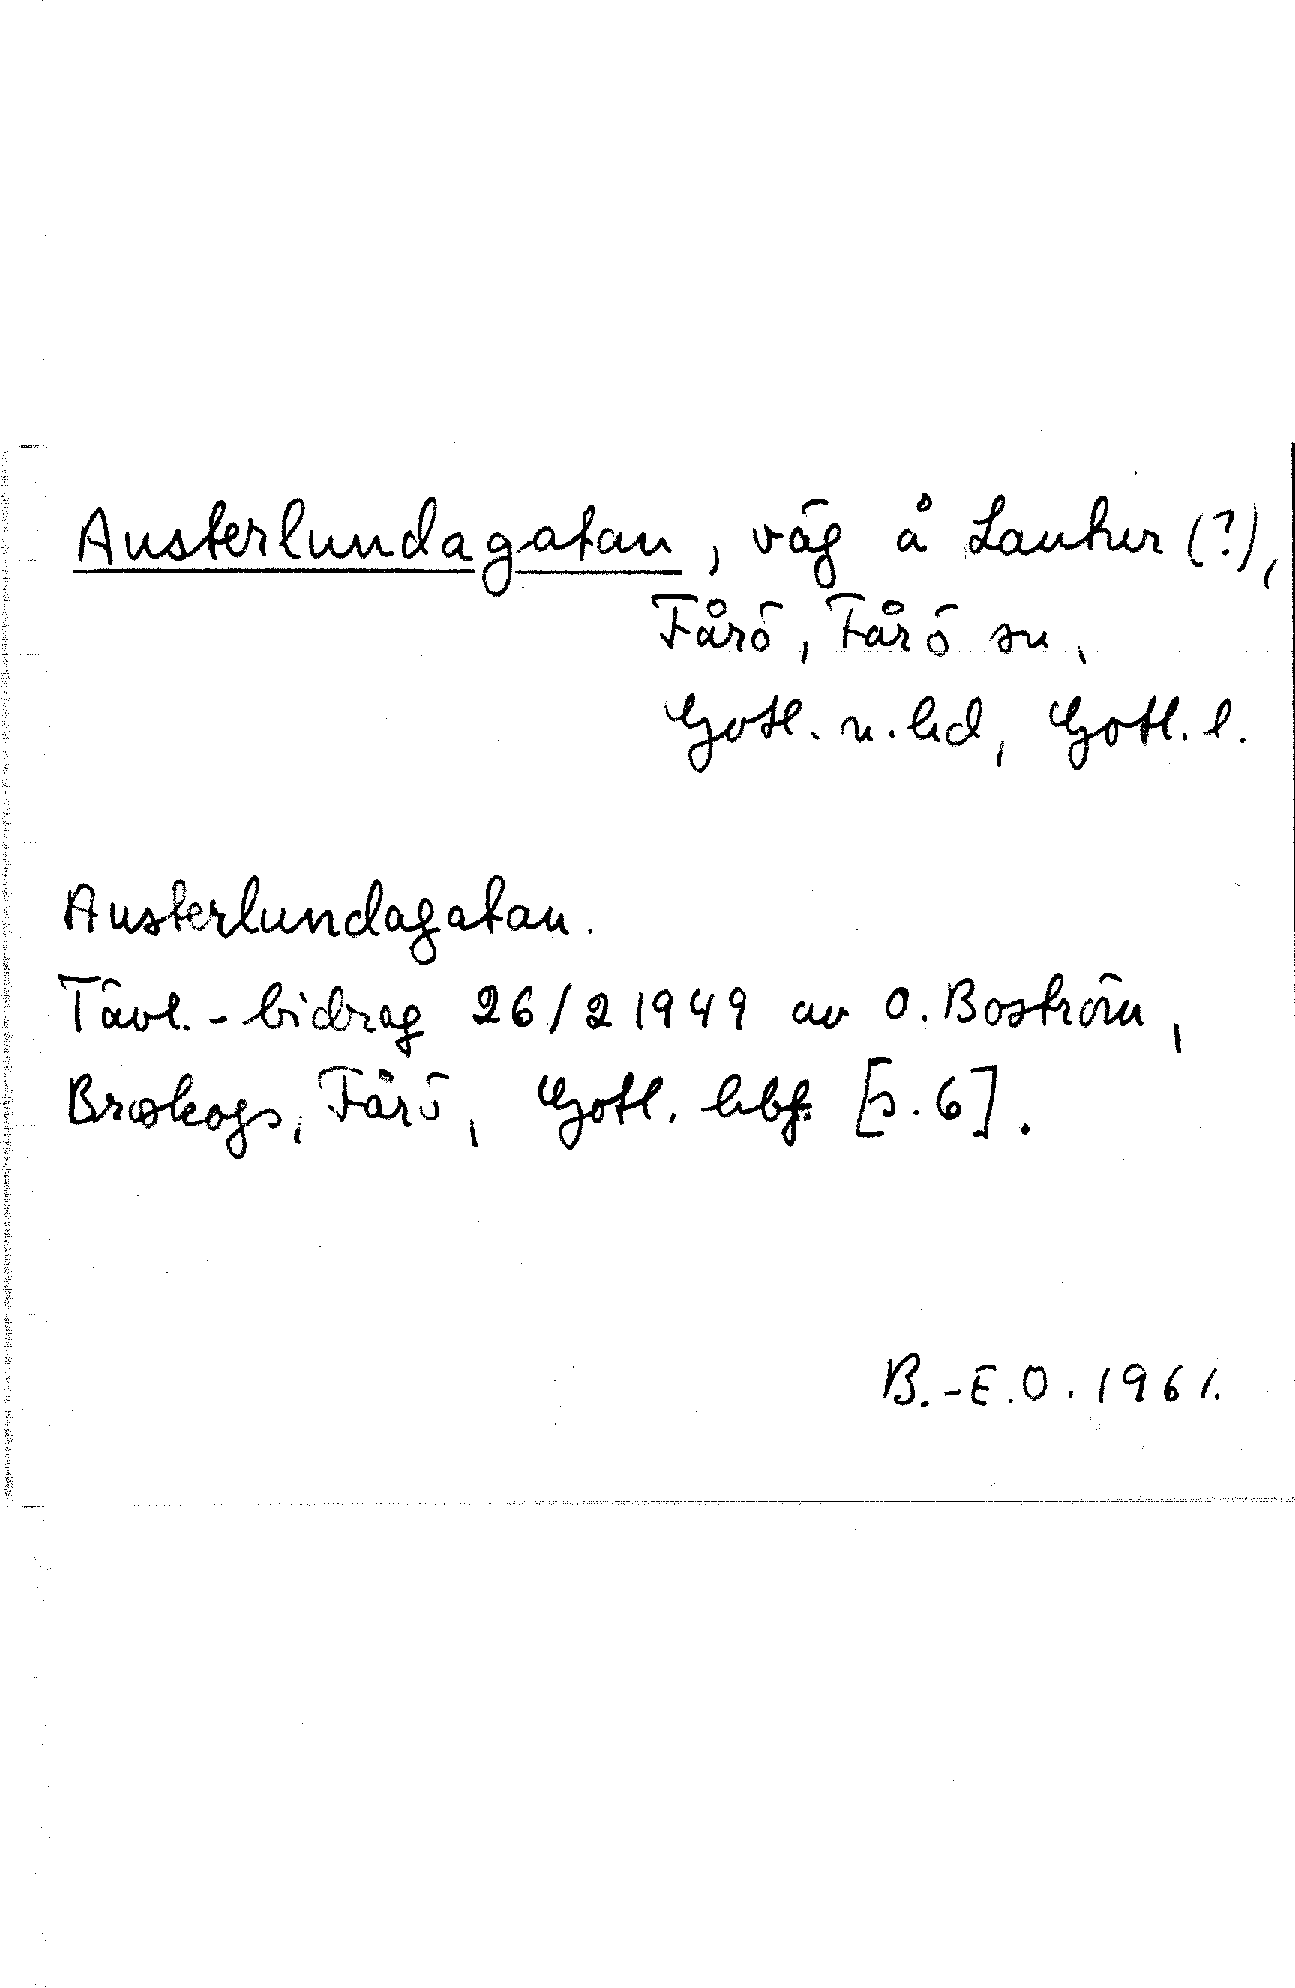 Austerlundagatan, väg å Lauter (?),
Fårö, Fårö sn,
Gotl. n. hd, Gotl. l.
Austerlundagatan.
Tävl.-bidrag 26/2 1949 av O. Boström,
Broskogs, Fårö, Gotl. hbf. [s. 6].
B.-E.O. 1961.